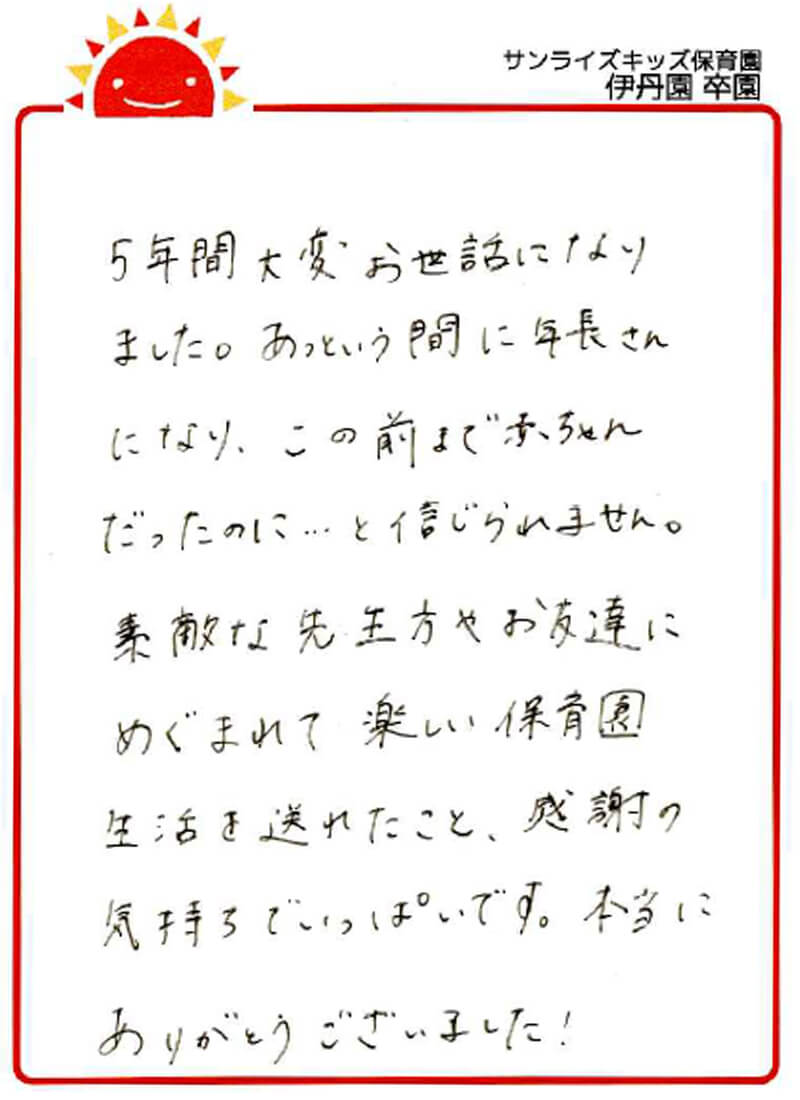 サンライズキッズ保育園
伊丹園 卒園
5年間大変お世話になり
ました。あっという間に年長さん
になり、この前まで赤ちゃん
だったのに…と信じられません。
素敵な先生方やお友達に
めぐまれて楽しい保育園
生活を送れたこと、感謝の
気持ちでいっぱいです。本当に
ありがとうございました!